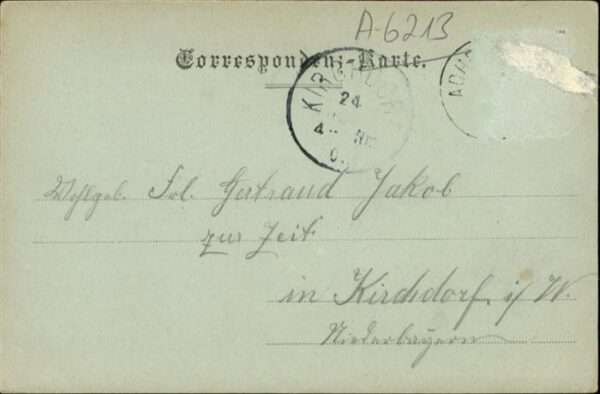 A-6213
Correspondenz-Karte.
KIRCHDORF
24
4
Wohlgeb. Frl. Gertraud Jakob
zur Zeit
in Kirchdorf i/W.
Niederbayern